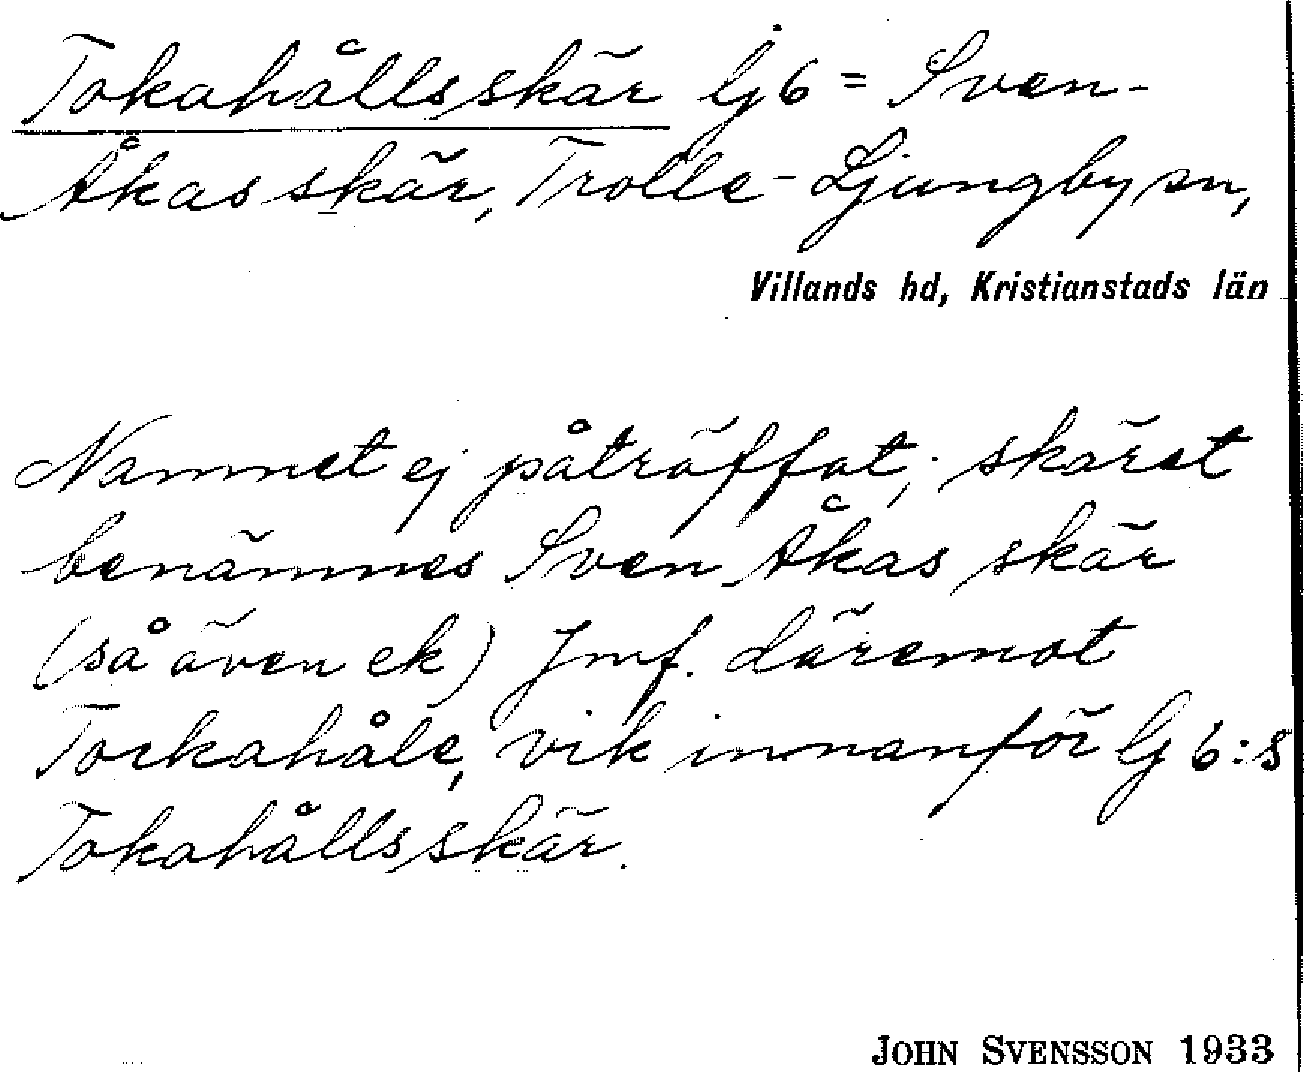 Tokahållsskär lj 6 = Sven-
Åkas skär, Trolle-Ljungby sn,
Villands hd, Kristianstads län
Namnet ej påträffat; skäret
benämnes Sven Åkas skär
(så även ek) Jmf. däremot
Tockahåle, vik innanför lj 6:s
Tokahållsskär.
JOHN SVENSSON 1933